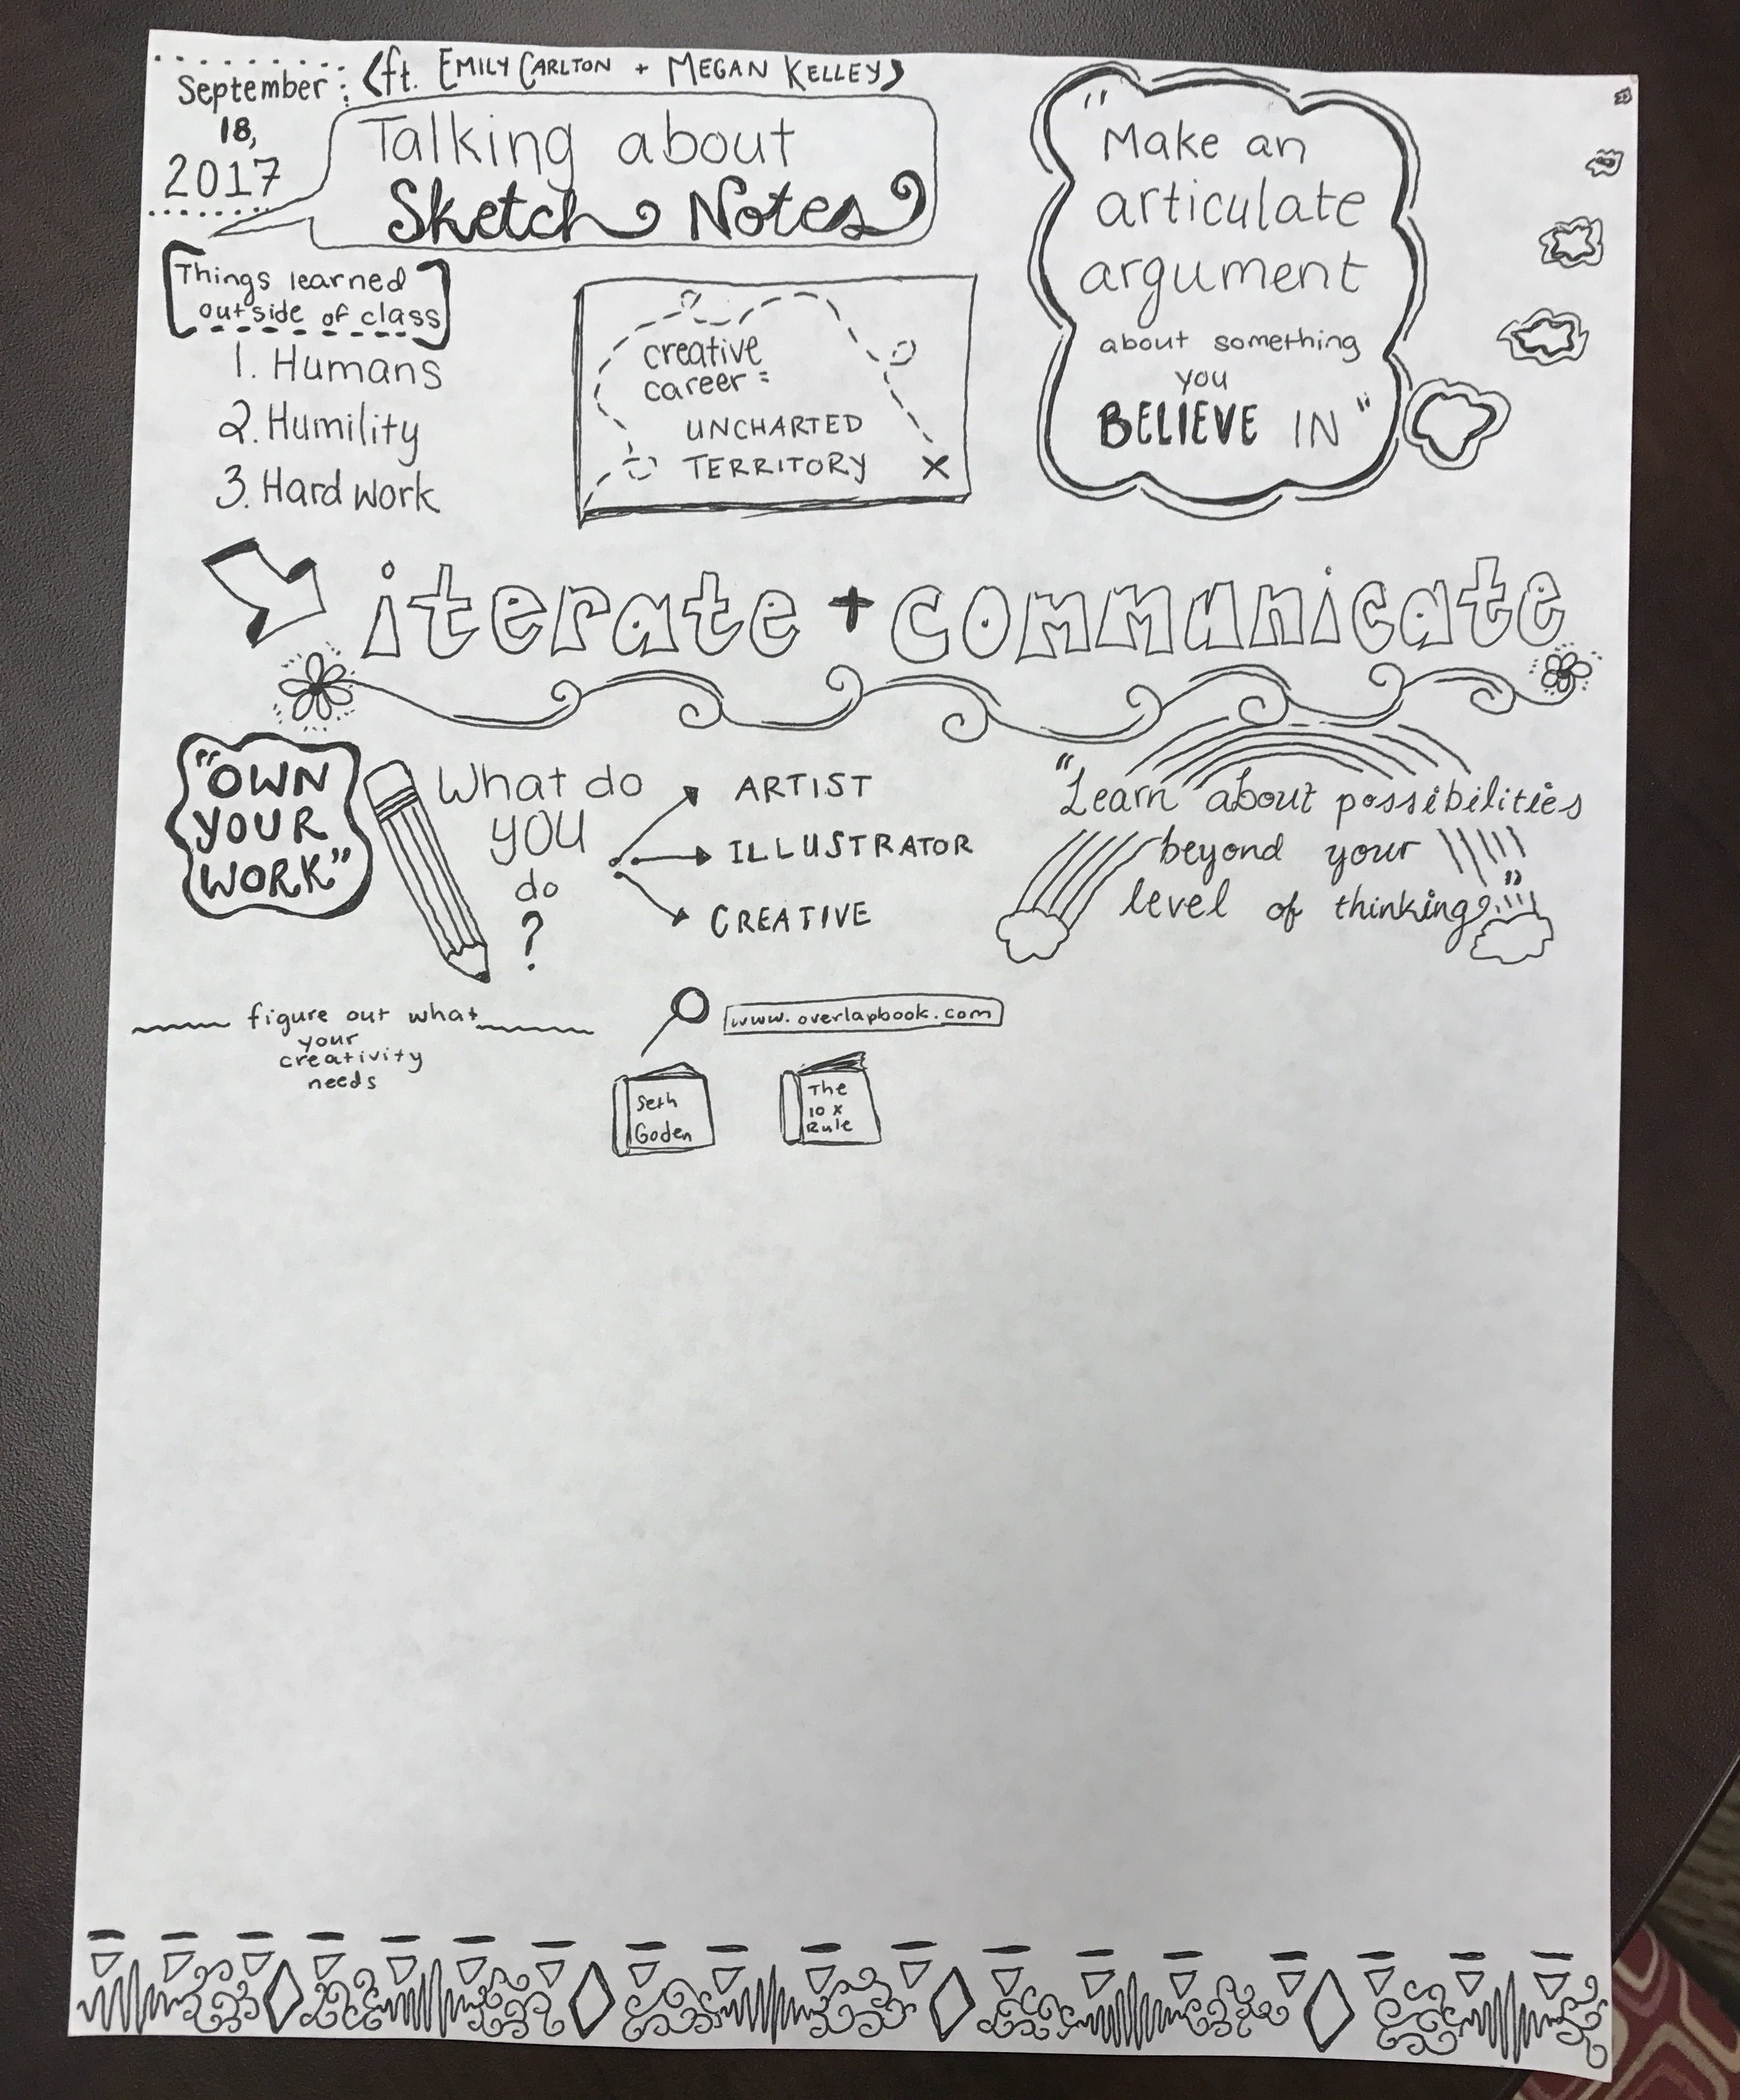 September
18,
2017
(ft. EMILY CARLTON + MEGAN KELLEY)
Talking about
Sketch Notes
Things learned
outside of class
1. Humans
2. Humility
3. Hard work
creative
career =
UNCHARTED
TERRITORY
X
"Make an
articulate
argument
about something
you
BELIEVE IN"
iterate + communicate
"OWN
YOUR
WORK"
What do
you
do
?
ARTIST
ILLUSTRATOR
CREATIVE
"Learn about possibilities
beyond your
level of thinking"
figure out what
your
creativity
needs
www.overlapbook.com
Seth
Goden
The
10 x
Rule